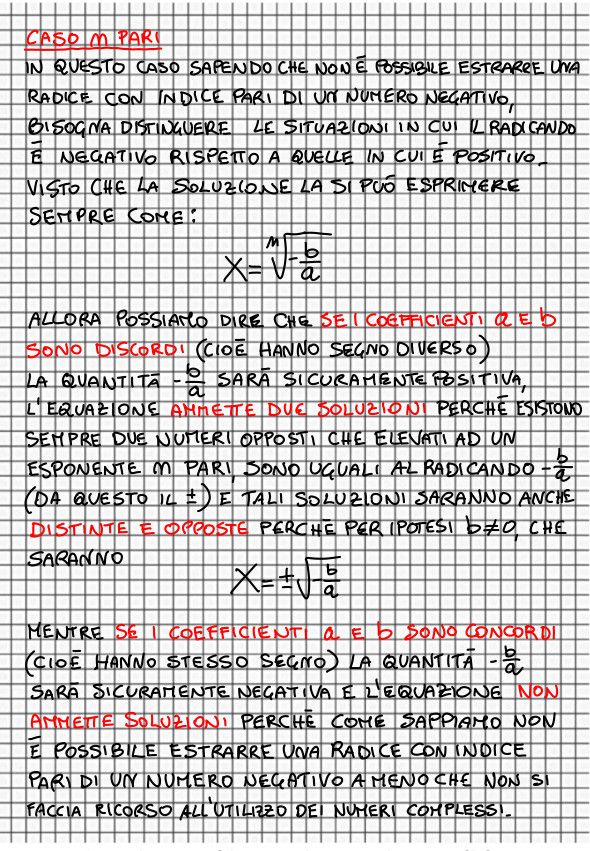 CASO n PARI
IN QUESTO CASO SAPENDO CHE NON È POSSIBILE ESTRARRE UNA
RADICE CON INDICE PARI DI UN NUMERO NEGATIVO,
BISOGNA DISTINGUERE LE SITUAZIONI IN CUI IL RADICANDO
È NEGATIVO RISPETTO A QUELLE IN CUI È POSITIVO.
VISTO CHE LA SOLUZIONE LA SI PUÒ ESPRIMERE
SEMPRE COME:
X = ⁿ√(-b/a)
ALLORA POSSIAMO DIRE CHE SE I COEFFICIENTI a E b
SONO DISCORDI (CIOÈ HANNO SEGNO DIVERSO)
LA QUANTITÀ -b/a SARÀ SICURAMENTE POSITIVA,
L'EQUAZIONE AMMETTE DUE SOLUZIONI PERCHÈ ESISTONO
SEMPRE DUE NUMERI OPPOSTI CHE ELEVATI AD UN
ESPONENTE n PARI, SONO UGUALI AL RADICANDO -b/a
(DA QUESTO IL ±) E TALI SOLUZIONI SARANNO ANCHE
DISTINTE E OPPOSTE PERCHÈ PER IPOTESI b≠0, CHE
SARANNO
X = ±√(-b/a)
MENTRE SE I COEFFICIENTI a E b SONO CONCORDI
(CIOÈ HANNO STESSO SEGNO) LA QUANTITÀ -b/a
SARÀ SICURAMENTE NEGATIVA E L'EQUAZIONE NON
AMMETTE SOLUZIONI PERCHÈ COME SAPPIAMO NON
È POSSIBILE ESTRARRE UNA RADICE CON INDICE
PARI DI UN NUMERO NEGATIVO A MENO CHE NON SI
FACCIA RICORSO ALL'UTILIZZO DEI NUMERI COMPLESSI.